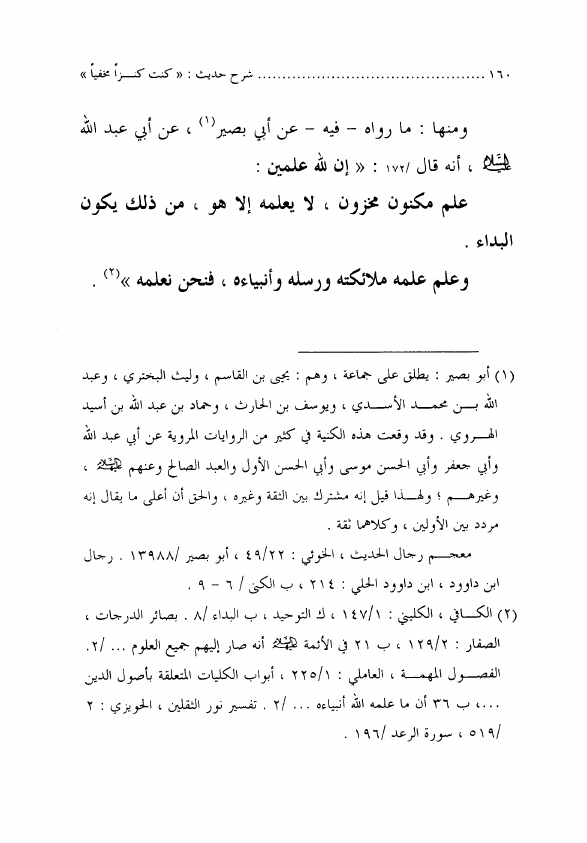 ١٦٠ .............................................. شرح حديث : « كنت كنـــزاً مخفياً »
ومنها : ما رواه – فيه – عن أبي بصير(١) ، عن أبي عبد الله
عليه السلام ، أنه قال /١٧٢ : « إن لله علمين :
علم مكنون مخزون ، لا يعلمه إلا هو ، من ذلك يكون
البداء .
وعلم علمه ملائكته ورسله وأنبياءه ، فنحن نعلمه »(٢) .
(١) أبو بصير : يطلق على جماعة ، وهم : يحيى بن القاسم ، وليث البختري ، وعبد
الله بـــن محمـــد الأســـدي ، ويوسف بن الحارث ، وحماد بن عبد الله بن أسيد
الهـروي . وقد وقعت هذه الكنية في كثير من الروايات المروية عن أبي عبد الله
وأبي جعفر وأبي الحسن موسى وأبي الحسن الأول والعبد الصالح وعنهم ،
وغيرهـــم ؛ ولهـــذا قيل إنه مشترك بين الثقة وغيره ، والحق أن أعلى ما يقال إنه
مردد بين الأولين ، وكلاهما ثقة .
معجـــم رجال الحديث ، الخوئي : ٤٩/٢٢ ، أبو بصير /١٣٩٨٨ . رجال
ابن داوود ، ابن داوود الحلي : ٢١٤ ، ب الكنى / ٦ – ٩ .
(٢) الكـــافي ، الكليني : ١٤٧/١ ، ك التوحيد ، ب البداء /٨. بصائر الدرجات ،
الصفار : ١٢٩/٢ ، ب ٢١ في الأئمة أنه صار إليهم جميع العلوم ... /٢.
الفصـــول المهمـــة ، العاملي : ٢٢٥/١ ، أبواب الكليات المتعلقة بأصول الدين
...، ب ٣٦ أن ما علمه الله أنبياءه ... /٢ . تفسير نور الثقلين ، الحويزي : ٢
/٥١٩ ، سورة الرعد /١٩٦ .